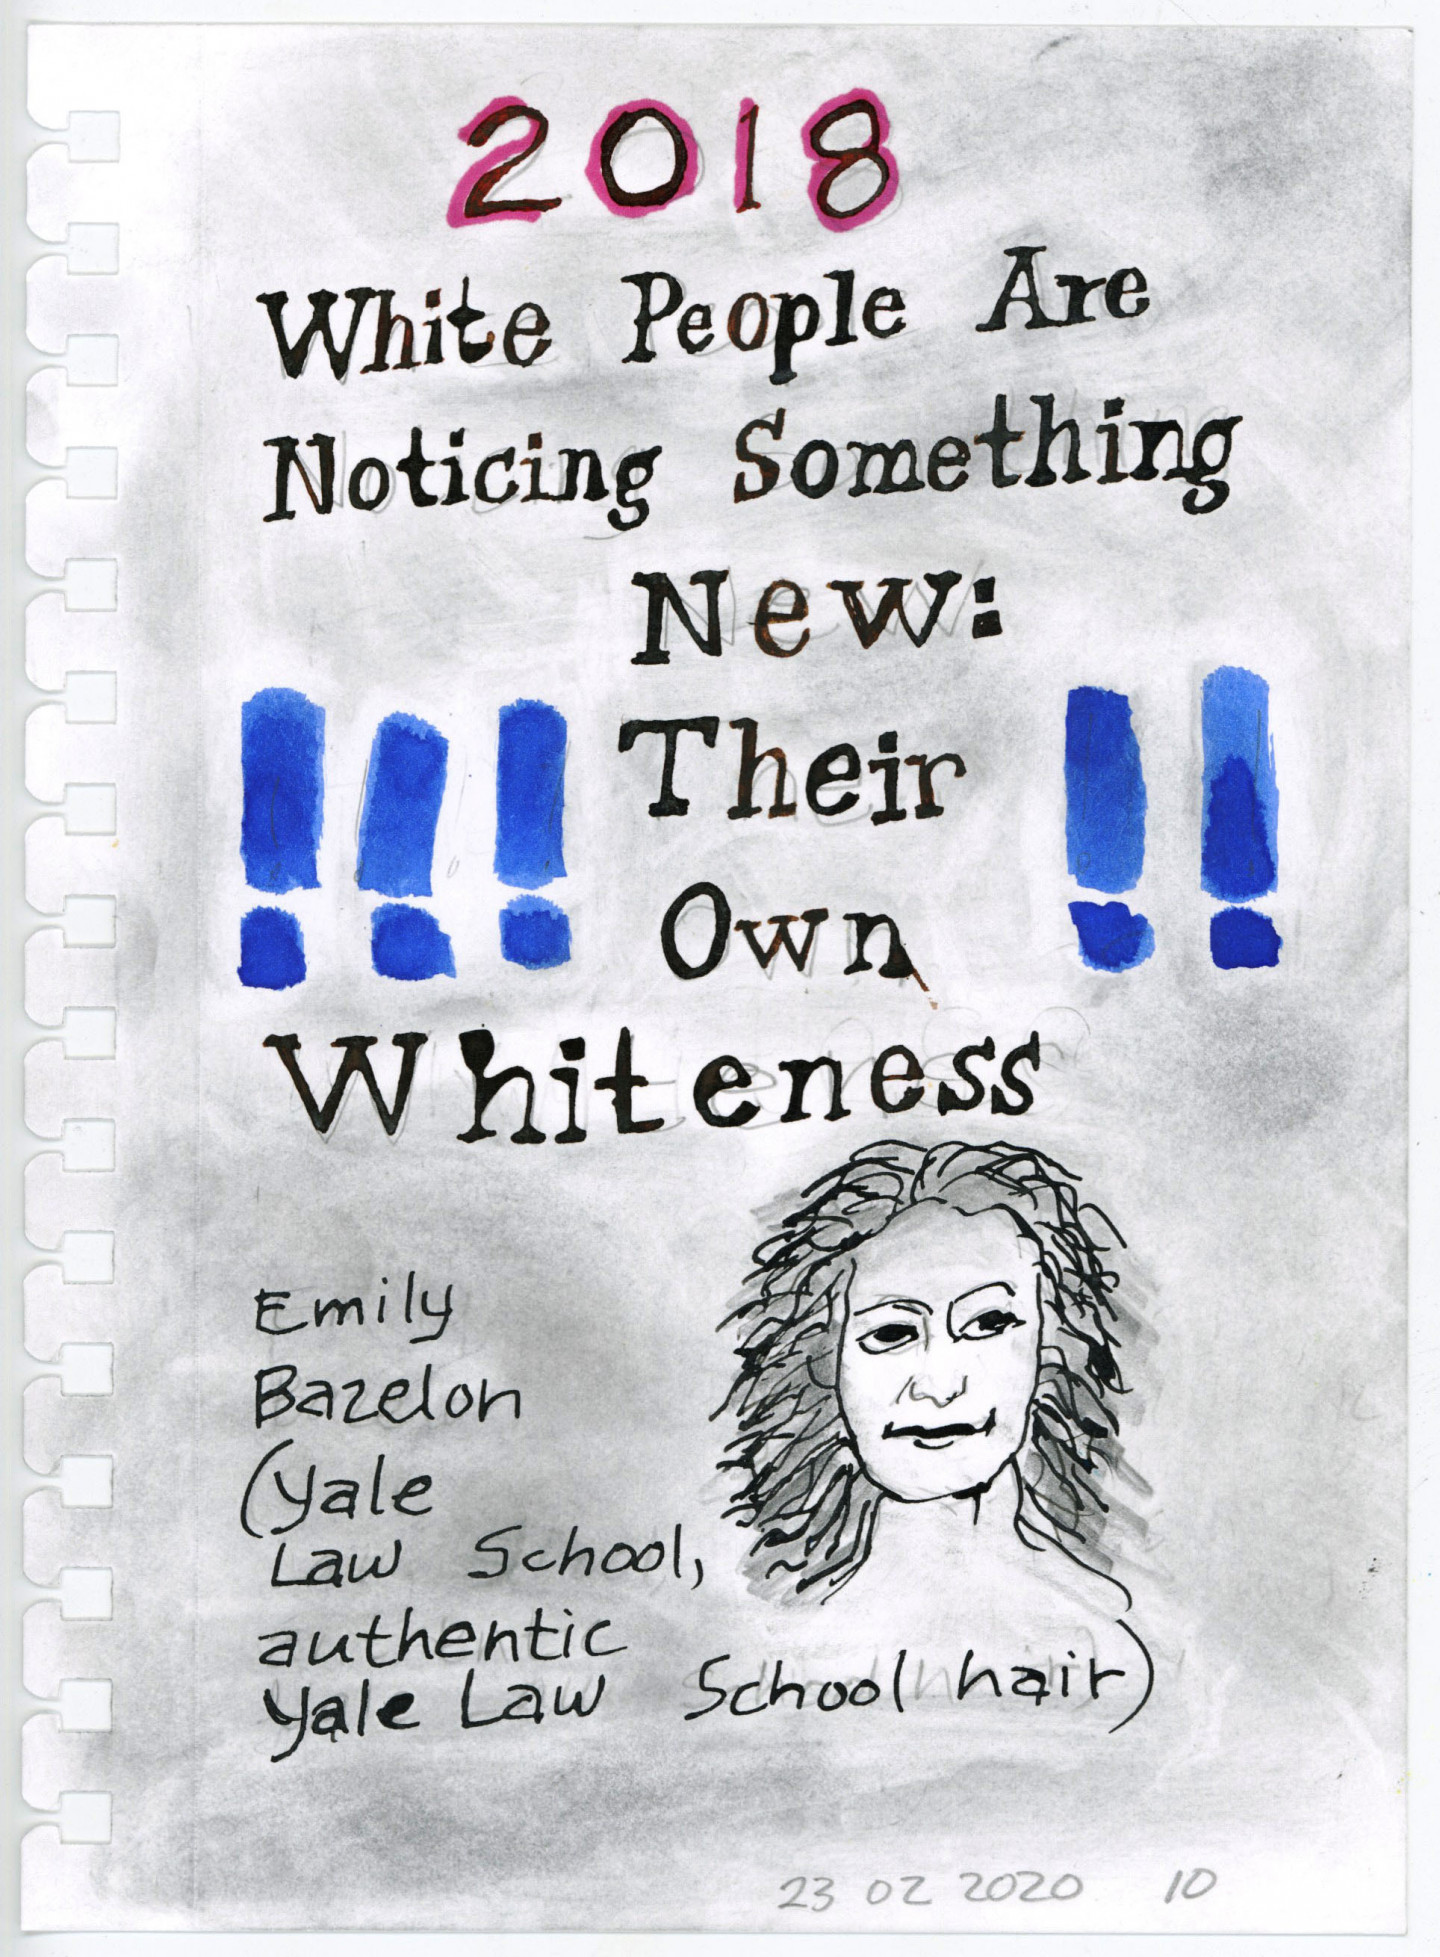 2018
White People Are
Noticing Something
New:
!!! Their !!
Own
Whiteness
Emily
Bazelon
(Yale
Law School,
authentic
Yale Law School hair)
23 02 2020 10